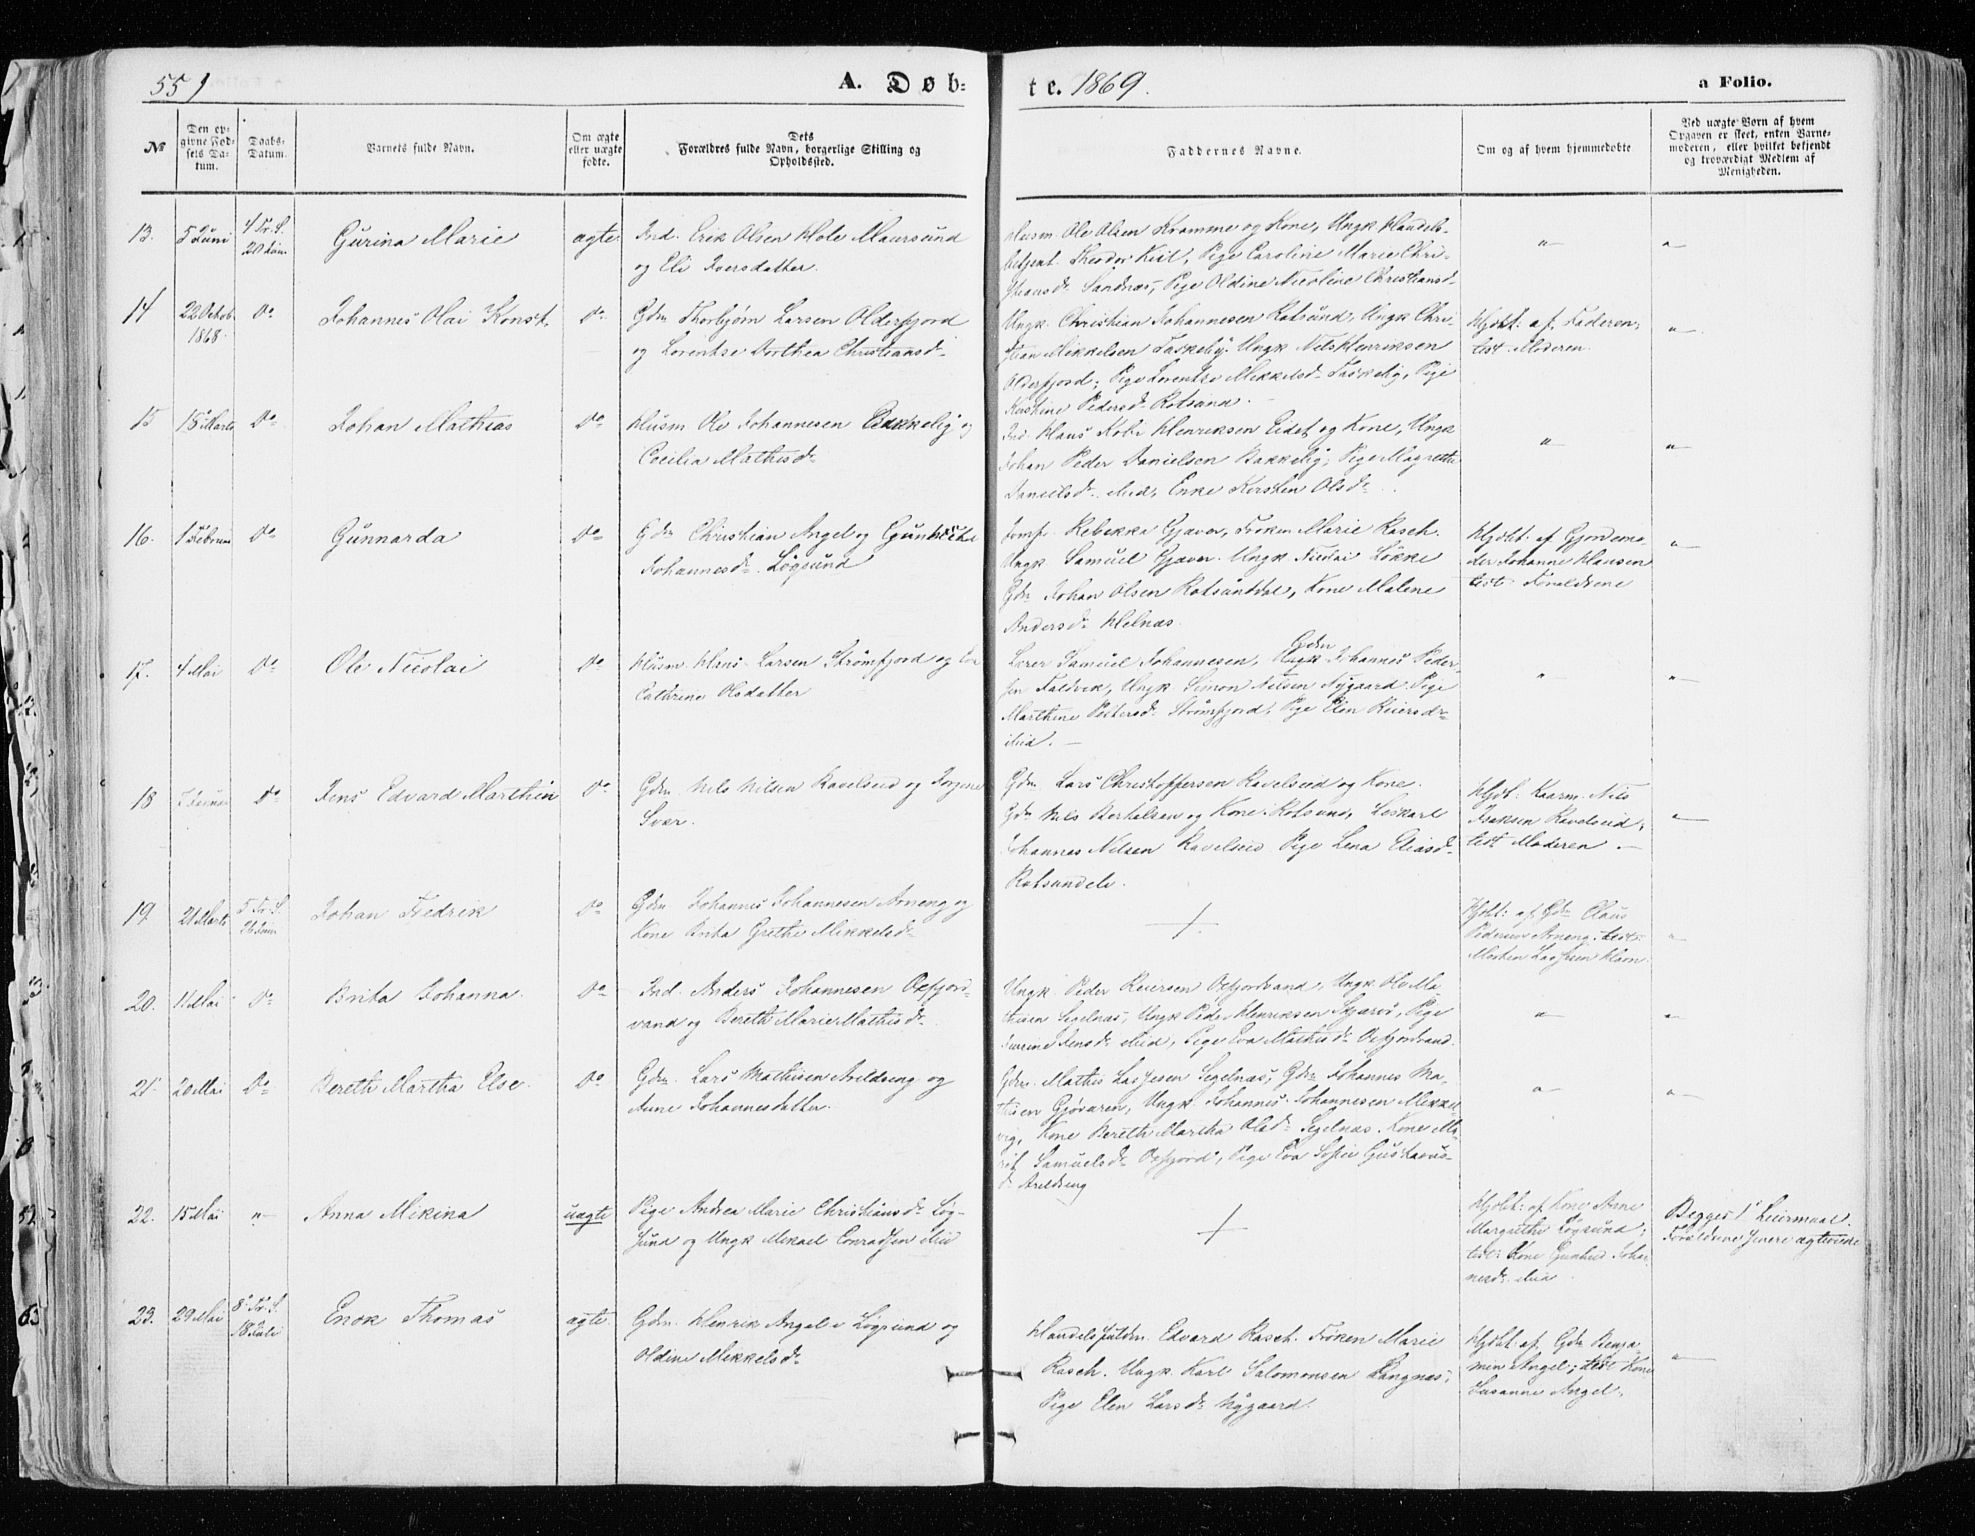 551
A. Døb-
te. 1869.
a Folio.
No
Den op-
givne Fød-
sels Da-
tum.
Daabs-
Datum.
Barnets fulde Navn.
Om ægte
eller uægte
fødte.
Dets
Forældres fulde Navn, borgerlige Stilling og
Opholdssted.
Faddernes Navne.
Om og af hvem hjemmedøbte
Ved uægte Børn af hvem
Opgaven er skeet, enten Barne-
moderen, eller hvilket bekjendt
og troværdigt Medlem af
Menigheden.
13. 5 Juni 4 Tr. S. 20 Juni Gurina Marie ægte. Ind. Erik Olsen Hole Maursund
og Eli Iversdatter.
Husm. Ole Olsen Kramme og Kone, Ungk. Handels-
betjent Theodor Kiil, Pige Caroline Marie Chri-
stiansdr Sandnæs, Pige Oldine Nicoline Christiansdr
14 22 Octob. 1868. Do Johannes Olai Konst. Do Gdm. Thorbjørn Larsen Olderfjord
og Lorentse Dorthea Christiansdr
Ungk. Christian Johannesen Rotsund, Ungk Chri-
stian Mikkelsen Taskeby. Ungk Nils Henriksen
Olderfjord; Pige Lorentse Mikkelsdr Taskeby, Pige
Kirstine Pedersdr Rotsund.
Hjdbt: af Faderen;
test. Moderen.
15 18 Marts Do Johan Mathias Do Husm Ole Johannesen Bakkeby og
Cecilia Mathisdr
Ind. Hans Henriksen Eidet og Kone, Ungk
Johan Peder Danielsen Bakkeby; Pige Magrethe
Danielsdr ibid, Enke Kirsten Olsdr
16. 1 Februar Do Gunnarda Do Gdm Christian Angel og Gunhild
Johannesdr. Løgsund
Jomfr. Rebekka Gjæver, Frøken Marie Rasch.
Ungk Samuel Gjæver. Ungk Nicolai Løkke
Gdm Johan Olsen Rotsunddal, Kone Malene
Andersdr Helnæs.
Hjdbt: af Gjordemo-
der Johanne Hansen
test. Forældrene
17. 4 Mai Do Ole Nicolai Do Husm. Hans Larsen Strømfjord og Eva
Cathrine Olsdatter
Lærer Samuel Johannesen, Gdm Johannes Peder-
sen Faldvik, Ungk. Simon Nilsen Nygaard. Pige
Marthine Pettersdr Strømfjord, Pige Elen Reiersdr
ibid.
18 Do Jens Edvard Marthin Do Gdm. Nils Nilsen Ravelseid og
Svær.
Gdm. Lars Christoffersen Ravelseid og Kone.
Gdm Nils Berthelsen og Kone Rotsund,
Johannes Nilsen Ravelseid. Pige Lena Eliasdr
Rotsundelv.
Hjdbt: Kaarm. Nils
Isaksen Ravelseid;
test Moderen.
19. 21 Marts 5 Tr. S. Johan Fredrik Do Gdm Johannes Johannesen Arneng og
Kone Brita Grethe Mikkelsdr
Hjdbt: af Gdm Claus
Pedersen Arneng. test:
Morten Lassesen Hamn
20. 11 Mai Do Brita Johanna. Do Ind. Anders Johannesen Oxfjord-
vand og Bereth Marie Mathisdr
Ungk Peder Reiersen Oxfjordvand, Ungk Ole Ma-
thisen Segelnæs, Ungk Peder Henriksen Skjærvø, Pige
Jensdr ibid, Pige Eva Mathisdr Oxfjordvand.
21. 20 Mai Do Bereth Martha Else. Do Gdm. Lars Mathisen Arildseng og
Anne Johannesdatter.
Gdm. Mathis Lassesen Segelnæs, Gdm Johannes Ma-
thisen Gjøvaren, Ungk. Johannes Johannesen Mekke-
vig, Kone Bereth Martha Olsdr Segelnæs. Kone Ma-
rit Samuelsdr Oxfjord, Pige Eva Sofie Gustavus-
dr Arildseng
22. 15 Mai Anna Mikina uægte Pige Andrea Marie Christiansdr Løg-
sund og Ungk Mikael Conradsen ibid
Hjdbt: af Kone Anne
Margrethe Løgsund;
test: Kone Gunhild Johan-
nesdr ibid.
Begges 1ste Leiermaal.
Forældrene senere ægteviede
23. 29 Mai 8 Tr. S. 18 Juli Enok Thomas ægte. Gdm. Henrik Angel Løgsund og
Oldine Mikkelsdr
Handelsfuldm. Edvard Rasch. Frøken Marie
Rasch. Ungk Karl Salomonsen Langnæs;
Pige Elen Larsdr Nygaard.
Hjdbt: af Gdm Benja-
min Angel; test Kone
Susanne Angel.